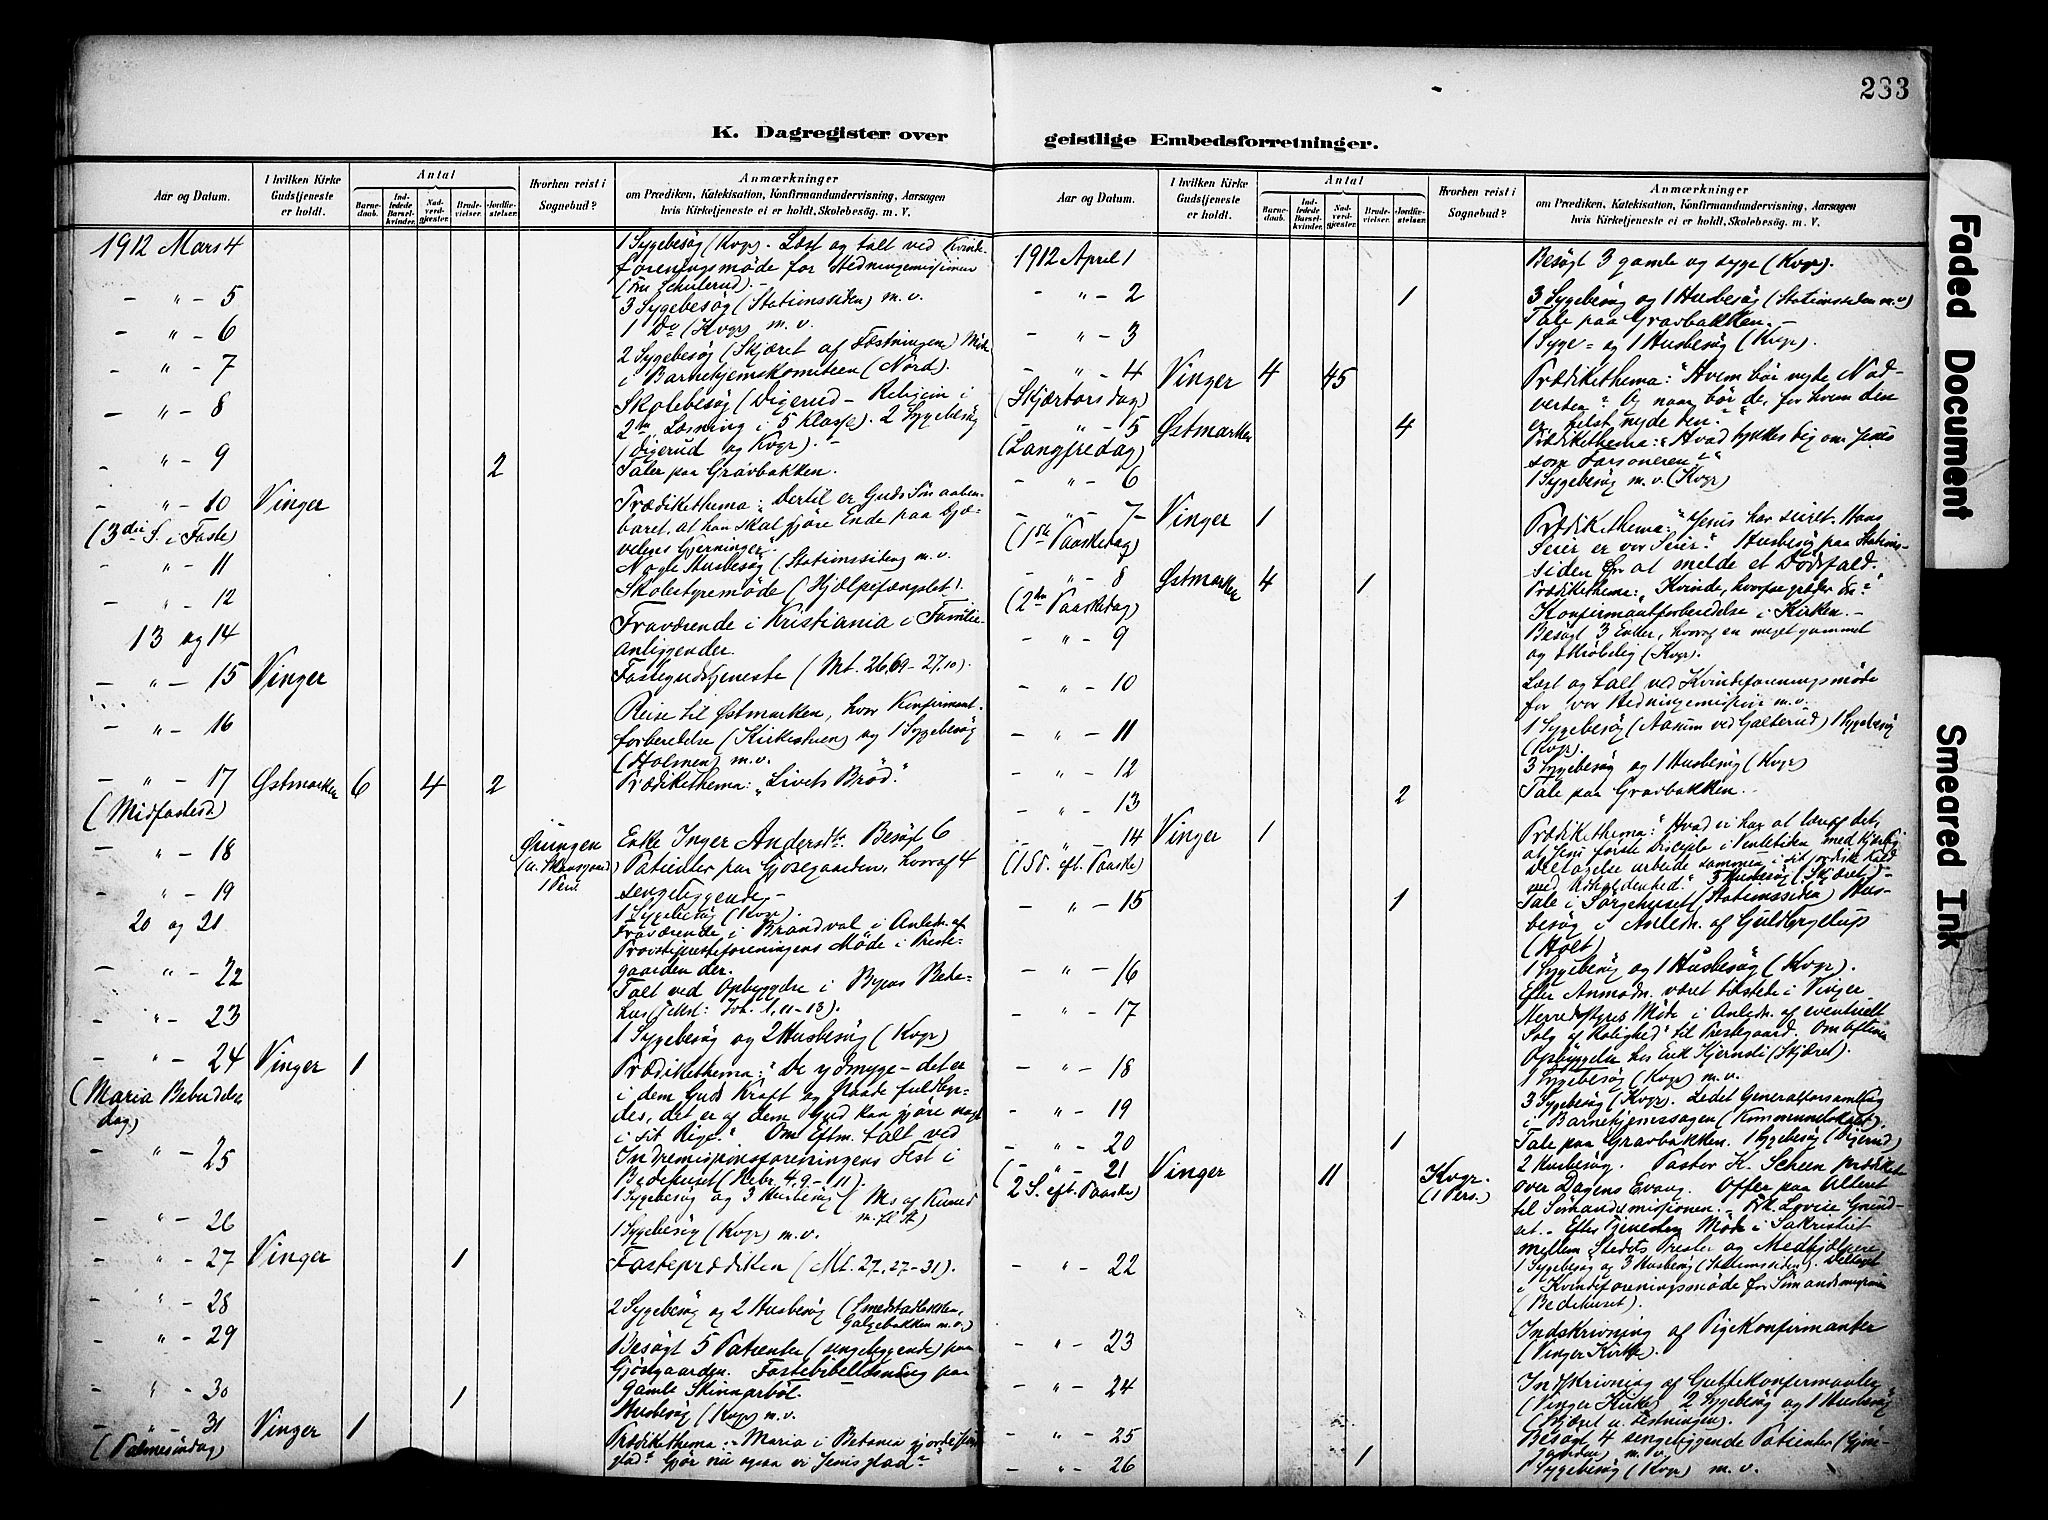 233
K. Dagregister over
geistlige Embedsforretninger.
Aar og Datum.
I hvilken Kirke Gudstjeneste er holdt.
Antal
Barnedaab.
Indledede Barselkvinder.
Nadverdgjester.
Brudevielser.
Jordfæstelser.
Hvorhen reist i Sognebud?
Anmærkninger
om Prædiken, Katekisation, Konfirmandundervisning, Aarsagen
hvis Kirketjeneste ei er holdt, Skolebesøg. m. V.
1912 Mars 4 1 Sygebesøg (Kvgr). Læst og talt ved Kvinde-
foreningsmøde for Hedningemissionen
(Fru Schulerud). –
– " – 5 3 Sygebesøg (Stationssiden) m. v.
– " – 6 1 Do (Kvgr) m. v.
– " – 7 2 Sygebesøg (Skjæret af Fæstningen) Møde
i Barnehjemskomiteen (Nord).
– " – 8 Skolebesøg (Digerud – Religion i
2den Læsning i 5 Klasse). 2 Sygebesøg
(Digerud og Kvgr). –
– " – 9 2 Taler paa Gravbakken.
– " – 10 Vinger Prædikethema: "Dertil er Guds Søn aaben-
(3die S. i Faste) baret, at han skal gjøre Ende paa Djæ-
velens Gjerninger".
– " – 11 Nogle Husbesøg (Stationssiden) m. v.
– " – 12 Skolestyremøde (Hjælpefængslet).
13 og 14 Fraværende i Kristiania i Familie-
anliggender.
– " – 15 Vinger Fastegudstjeneste (Mt. 26,69 – 27,10).
– " – 16 Reise til Østmarken, hvor Konfirmant-
forberedelse (Kirkestuen) og 1 Sygebesøg
(Holmen) m. v.
– " – 17 Østmarken 6 4 2 Prædikethema: "Livets Brød."
(Midfastesd)
– " – 18 Øiungen Enke Inger Andersdtr. Besøgt 6
1 Pers Patienter paa Gjøsegaarden, hvoraf 4
sengeliggende –
– " – 19 1 Sygebesøg (Kvgr).
20 og 21 Fraværende i Brandval i Anledn. af
Provstipresteforeningens Møde i Preste-
gaarden der.
– " – 22 Talt ved Opbyggelse i Byens Bede-
hus (Tekst: Joh. 1, 11–13).
– " – 23 1 Sygebesøg og 2 Husbesøg (Kvgr)
– " – 24 Vinger 1 Prædikethema: "De ydmyge – det er
(Maria Bebudelses i dem Guds Kraft og Naade fuldbyr-
dag) des, det er af dem Gud kan gjøre nogt
i sit Rige." Om Eftm. talt ved
– " – 25 Indremissionsforeningens Fest i
Bedehuset (Hebr. 4, 9 – 11).
1 Sygebesøg og 3 Husbesøg
– " – 26 1 Sygebesøg (Kvgr) m. v.
– " – 27 Vinger 1 Fasteprædiken (Mt. 27, 27–31).
– " – 28 2 Sygebesøg og 2 Husbesøg (Smedstadbakken,
Galgebakken m. v.)
– " – 29 Besøgt 5 Patienter (sengeliggende) paa
Gjøsegaarden. Fastebibellæsning paa
– " – 30 1 gamle Skinnarbøl.
Husbesøg (Kvgr) m. v.
– " – 31 Vinger 1 Prædikethema: "Maria i Betania gjorde Jesus
(Palmesøndag) glad". Gjør nu ogsaa vi Jesus glad?"
Aar og Datum.
I hvilken Kirke Gudstjeneste er holdt.
Antal
Barnedaab.
Indledede Barselkvinder.
Nadverdgjester.
Brudevielser.
Jordfæstelser.
Hvorhen reist i Sognebud?
Anmærkninger
om Prædiken, Katekisation, Konfirmandundervisning, Aarsagen
hvis Kirketjeneste ei er holdt, Skolebesøg. m. V.
1912 April 1 Besøgt 3 gamle og syge (Kvgr).
– " – 2 1 3 Sygebesøg og 1 Husbesøg (Stationssiden m. v)
Tale paa Gravbakken. –
– " – 3 1 Syge- og 1 Husbesøg (Kvgr).
– " – 4 Vinger 4 45 Prædikethema: "Hvem bør nyde Nad-
(Skjærtorsdag) verden? Og naar bør de, for hvem den
er, helst nyde den?"
– " – 5 Østmarken 4 Prædikethema: "Hvad tykkes dig om Jesus
(Langfredag) som Forsoneren?"
– " – 6 1 Sygebesøg m. v. (Kvgr)
– " – 7 – Vinger 1 Prædikethema: "Jesus har seiret. Hans
(1ste Paaskedag) Seier er vor Seier." Husbesøg paa Stations-
siden for at melde et Dødsfald.
– " – 8 Østmarken 4 1 Prædikethema: "Kvinde, hvorfor græder du?"
(2den Paaskedag) Konfirmantforberedelse i Kirken. –
– " – 9 Besøgt 3 Enker, hvoraf en meget gammel
og skrøbelig (Kvgr).
– " – 10 Læst og talt ved Kvindeforeningsmøde
for vor Hedningemission m. v.
– " – 11 1 Sygebesøg (Aarum ved Galterud) 1 Sygebesøg
(Kvgr).
– " – 12 3 Sygebesøg og 1 Husbesøg (Kvgr)
– " – 13 2 Tale paa Gravbakken. –
– " – 14 Vinger 1 Prædikethema: "Hvad vi har at lære af det,
(1 S. eft. Paaske) at Jesu første Disciple i Ventetiden med kjærlig
Deltagelse arbeide sammen i sit jordisk Kald
med Udholdenhed." 3 Husbesøg (Skjæret) –
– " – 15 1 Tale i Sørgehuset (Stationssiden) Hus-
besøg i Anledn. af Guldbryllup
(Holt)
– " – 16 1 Sygebesøg og 1 Husbesøg (Kvgr).
– " – 17 Efter Anmodn. været tilstede i Vinger
Herredsstyres Møde i Anledn. af eventuelt
Salg af "Rolighed" til Prestegaard. Om Aftenen
Opbyggelse hos Erik Kjernsli (Skjæret).
– " – 18 1 Sygebesøg (Kvgr) m. v.
– " – 19 3 Sygebesøg (Kvgr). Ledet Generalforsamling
i Barnehjemssagen (Kommunelokalet).
– " – 20 1 Tale paa Gravbakken. 1 Sygebesøg (Digerud)
– " – 21 Vinger 11 Kvgr. 2 Husbesøg. Pastor K. Scheen prædiket
(2 S. eft. Paaske) (1 Pers.) over Dagens Evang. Offer paa Alteret
til Sømandsmissionen. – Frk. Lovise Grund-
set. – Efter Tjenesten Møde i Sakristiet
mellem Stedets Prester og Medhjælpere
– " – 22 1 Sygebesøg og 3 Husbesøg (Stationssiden). Deltaget
i Kvindeforeningsmøde for Sømandsmission
(Bedehuset).
– " – 23 Indskrivning af Pigekonfirmanter
(Vinger Kirke).
– " – 24 Indskrivning af Guttekonfirmanter
(Vinger Kirke) 2 Sygebesøg og 1 Husbesøg
(Skjæret u. Festningen).
– " – 25 Besøgt 4 sengeliggende Patienter (Gjøse-
gaarden) m. v.
– " – 26 1 1 Sygebesøg (Kvgr) m. v.
Faded Document
Smeared Ink